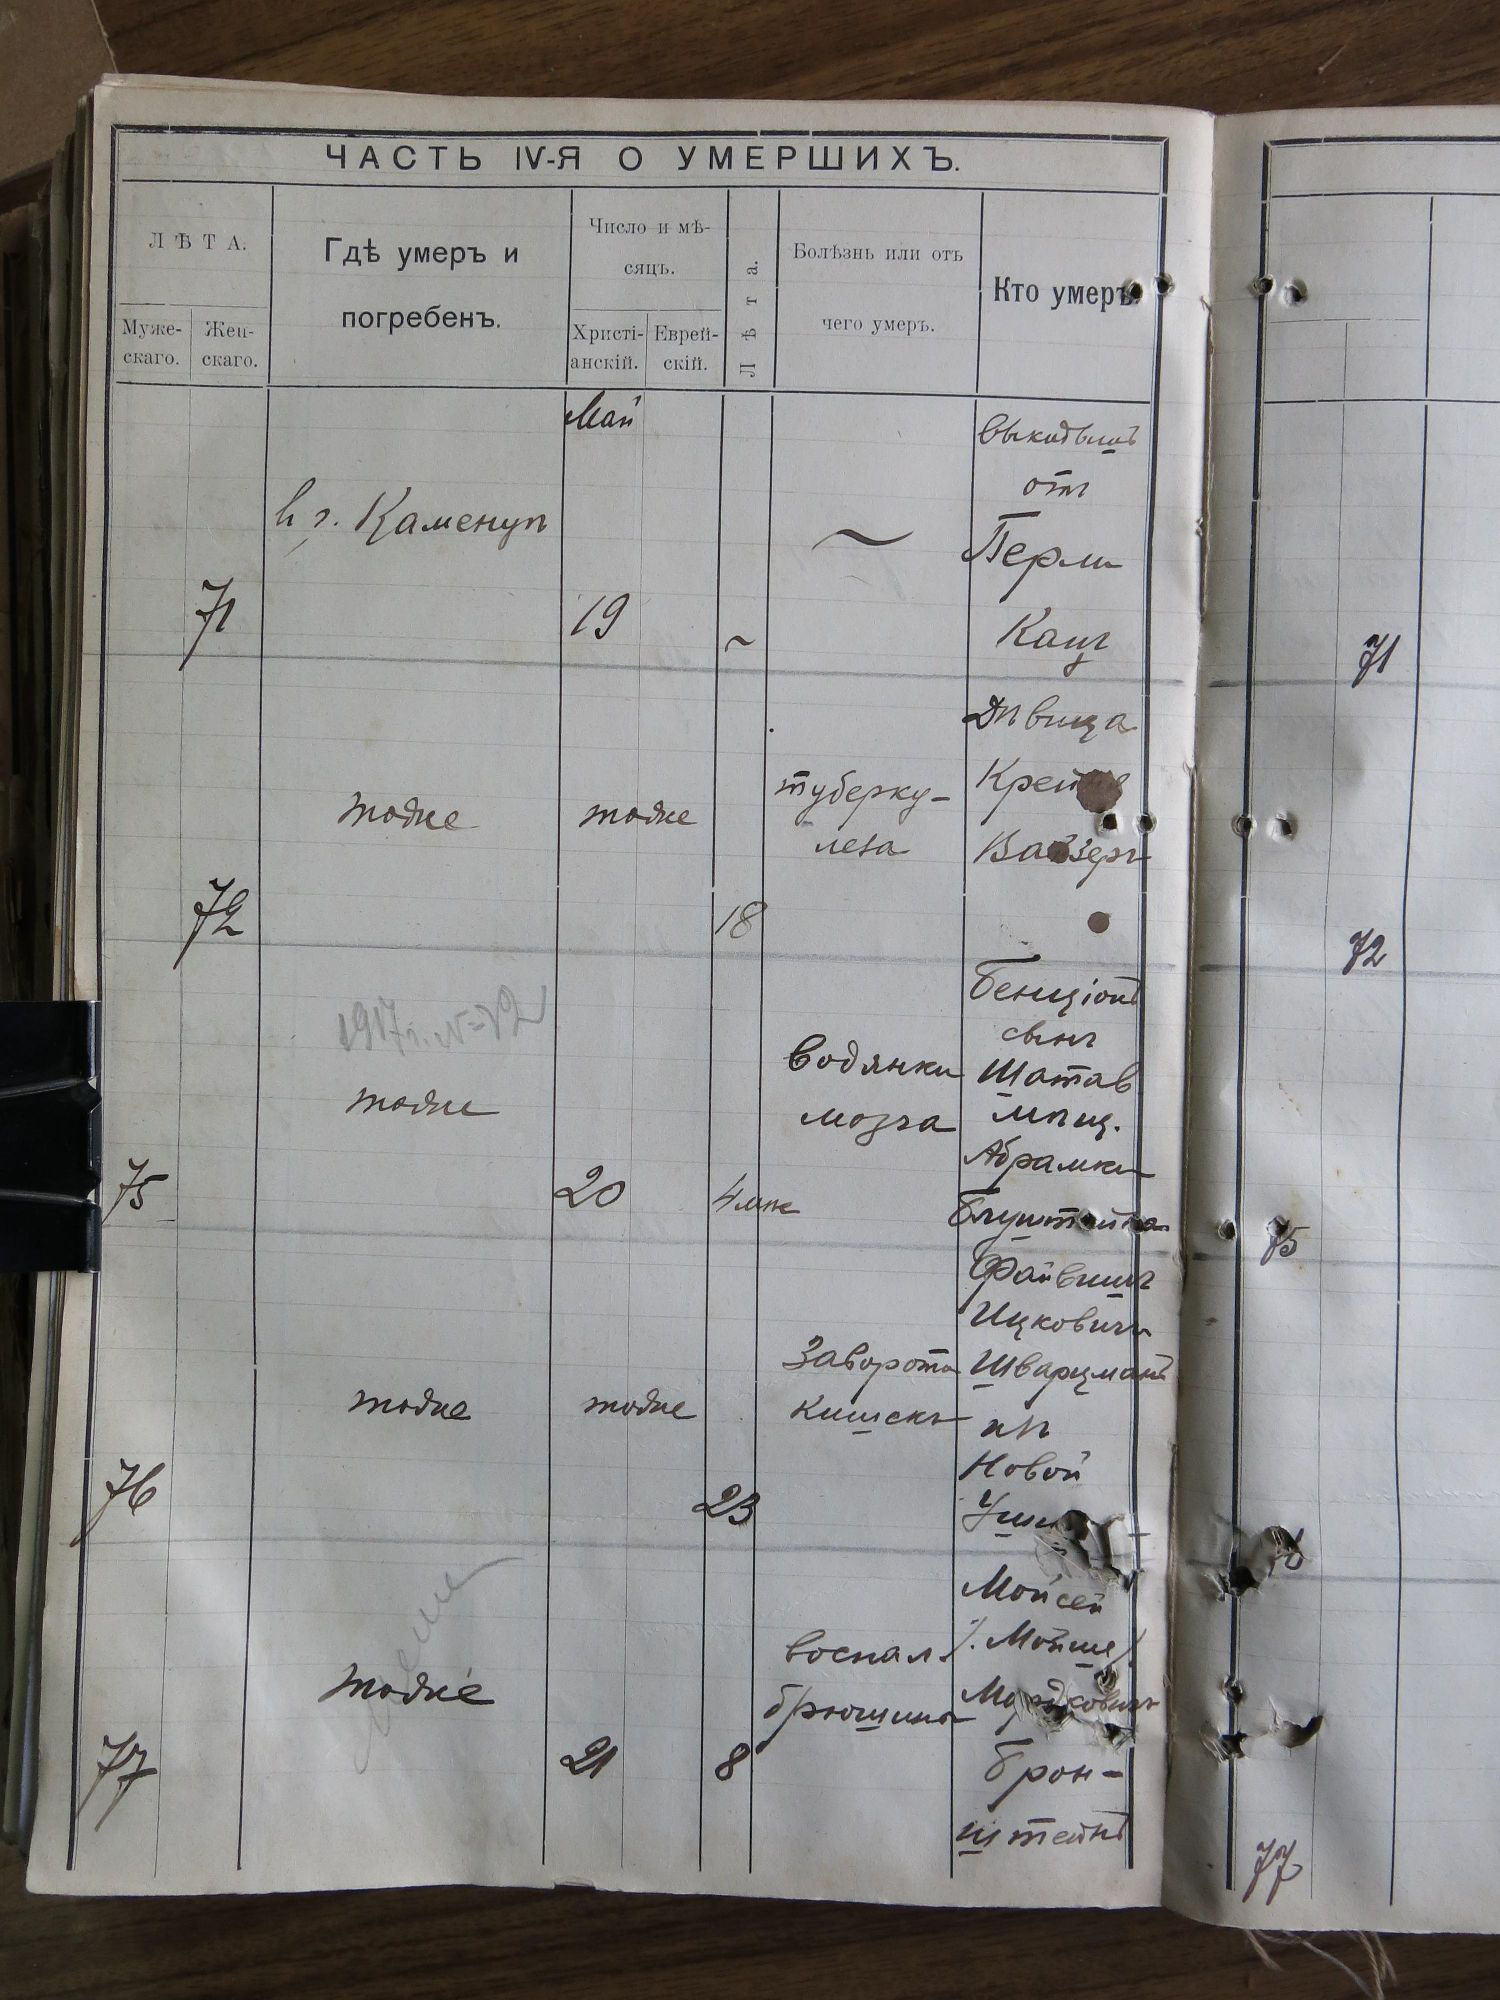 ЧАСТЬ IV-Я О УМЕРШИХЪ.
ЛѢТА.
Муже-
скаго.
Жен-
скаго.
Гдѣ умеръ и
погребенъ.
Число и мѣ-
сяцъ.
Христі-
анскій.
Еврей-
скій.
Лѣта.
Болѣзнь или отъ
чего умеръ.
Кто умеръ.
Май
71
в г. Каменцѣ
19
~
~
выкидышъ
отъ
Перли
Кацъ
71
72
тоже
тоже
18
туберку-
леза
Дѣвица
Вайзеръ
72
1917г. №=
75
тоже
20
4 мѣс
водянки
мозга
Бенціонъ
сынъ
Шатав
мѣщ.
Абрамки
Блуштейна
75
76
тоже
тоже
23
Заворота
кишекъ
Файвишъ
Ицковичъ
Шварцманъ
изъ
Новой
77
тоже
21
8
воспал.
брюшины
Мойсей
/. Мойше/
Мордковичъ
Брон-
штейнъ
77